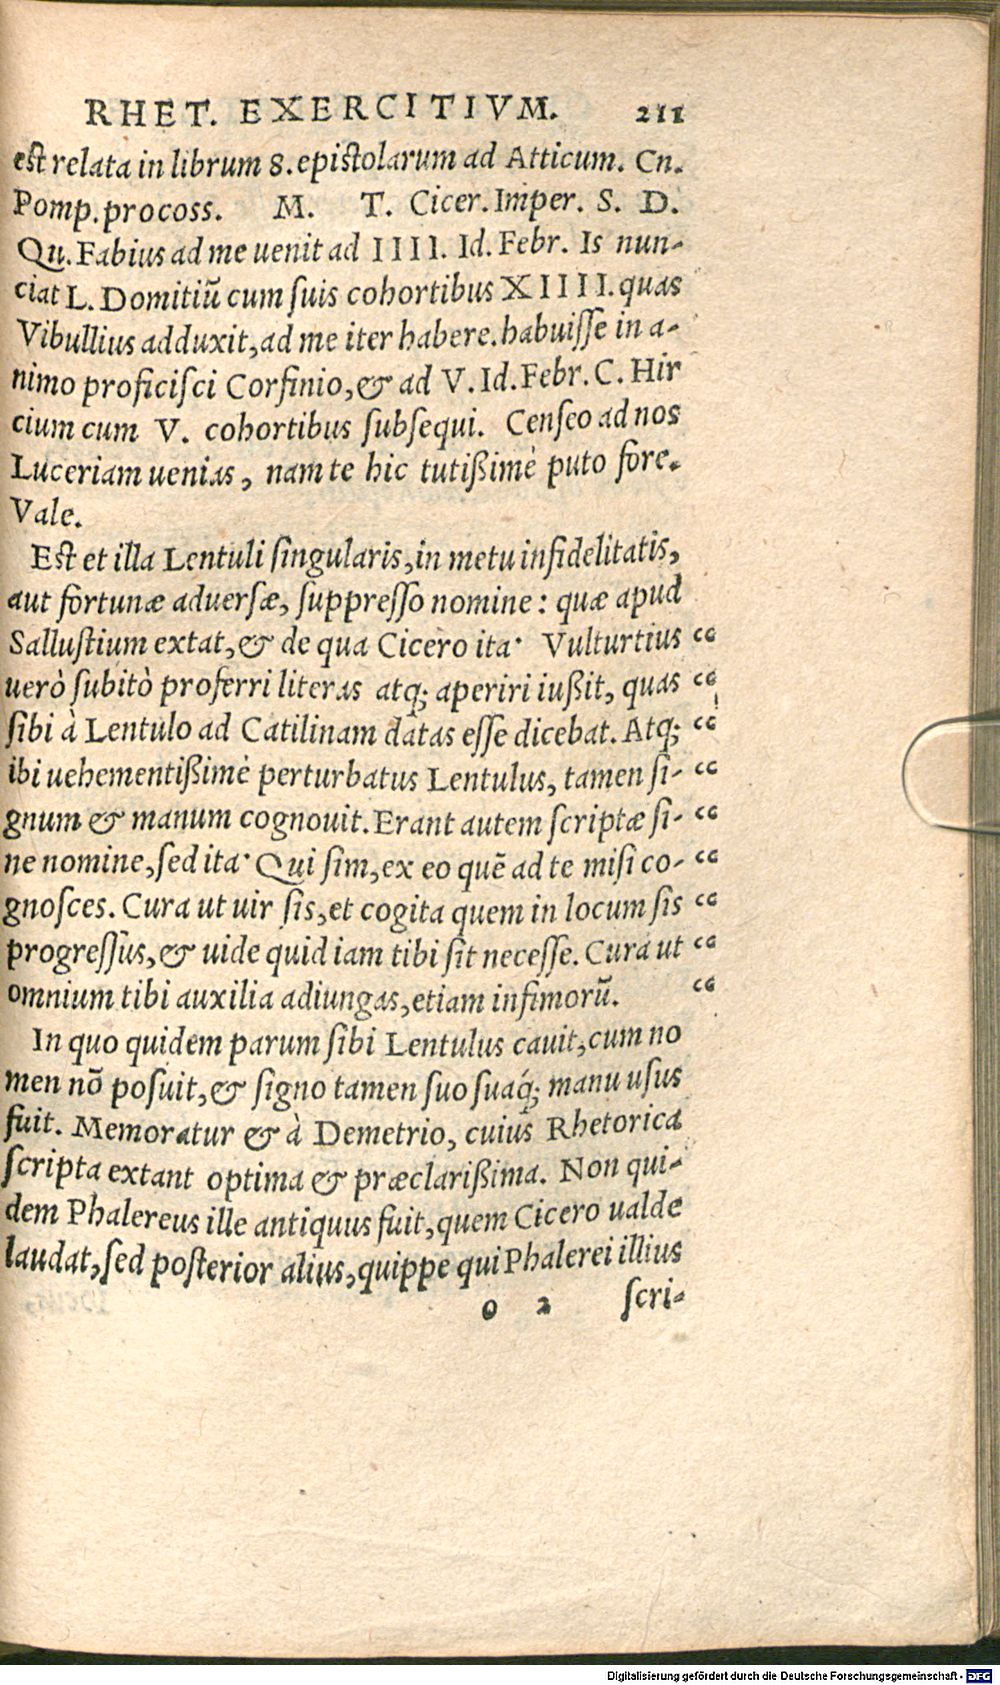 RHET. EXERCITIVM. 211
est relata in librum 8. epistolarum ad Atticum. Cn.
Pomp. procoss. M. T. Cicer. Imper. S. D.
Qu. Fabius ad me uenit ad IIII. Id. Febr. Is nun-
ciat L. Domitiũ cum suis cohortibus XIIII. quas
Vibullius adduxit, ad me iter habere. habuisse in a-
nimo proficisci Corfinio, & ad V. Id. Febr. C. Hir
cium cum V. cohortibus subsequi. Censeo ad nos
Luceriam uenias, nam te hic tutißimè puto fore.
Vale.
Est et illa Lentuli singularis, in metu infidelitatis,
aut fortunæ aduersæ, suppresso nomine: quæ apud
Sallustium extat, & de qua Cicero ita· Vulturtius “
uerò subitò proferri literas atq; aperiri iußit, quas “
sibi à Lentulo ad Catilinam datas esse dicebat. Atq; “
ibi uehementißimè perturbatus Lentulus, tamen si- “
gnum & manum cognouit. Erant autem scriptæ si- “
ne nomine, sed ita· Qui sim, ex eo quẽ ad te misi co- “
gnosces. Cura ut uir sis, et cogita quem in locum sis “
progressus, & uide quid iam tibi sit necesse. Cura ut “
omnium tibi auxilia adiungas, etiam infimorũ. “
In quo quidem parum sibi Lentulus cauit, cum no
men nõ posuit, & signo tamen suo suaq́; manu usus
fuit. Memoratur & à Demetrio, cuius Rhetorica
scripta extant optima & præclarißima. Non qui-
dem Phalereus ille antiquus fuit, quem Cicero ualde
laudat, sed posterior alius, quippe qui Phalerei illius
o 2 scri-
Digitalisierung gefördert durch die Deutsche Forschungsgemeinschaft - DFG